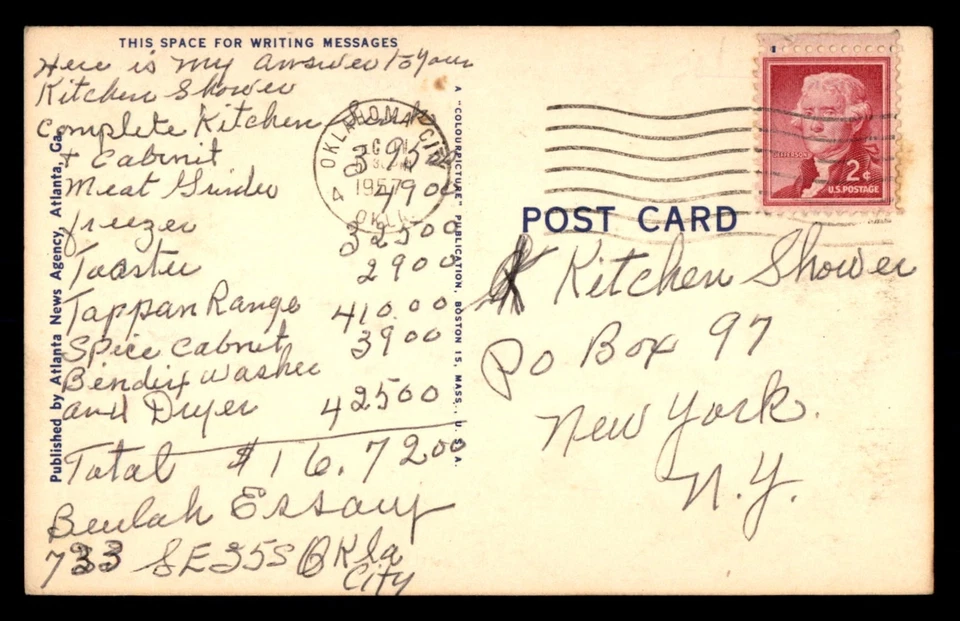 THIS SPACE FOR WRITING MESSAGES
Here is my answer to your
Kitchen Shower
Complete Kitchen Sink
+ Cabinit 39500
Meat Grinder 4900
freezer 32500
Toaster 2900
Tappan Range 410.00
Spice Cabnit 3900
Bendix washer
and Dryer 42500
Total $16.7200
Beulah Essary
733 SE 35S Okla
City
Published by Atlanta News Agency, Atlanta, Ga.
A "COLOURPICTURE" PUBLICATION, BOSTON 15, MASS., U. S. A.
OKLAHOMA CITY
4
1957
OKLA.
JEFFERSON
2¢
U.S. POSTAGE
POST CARD
Kitchen Shower
Po Box 97
New York.
N.Y.